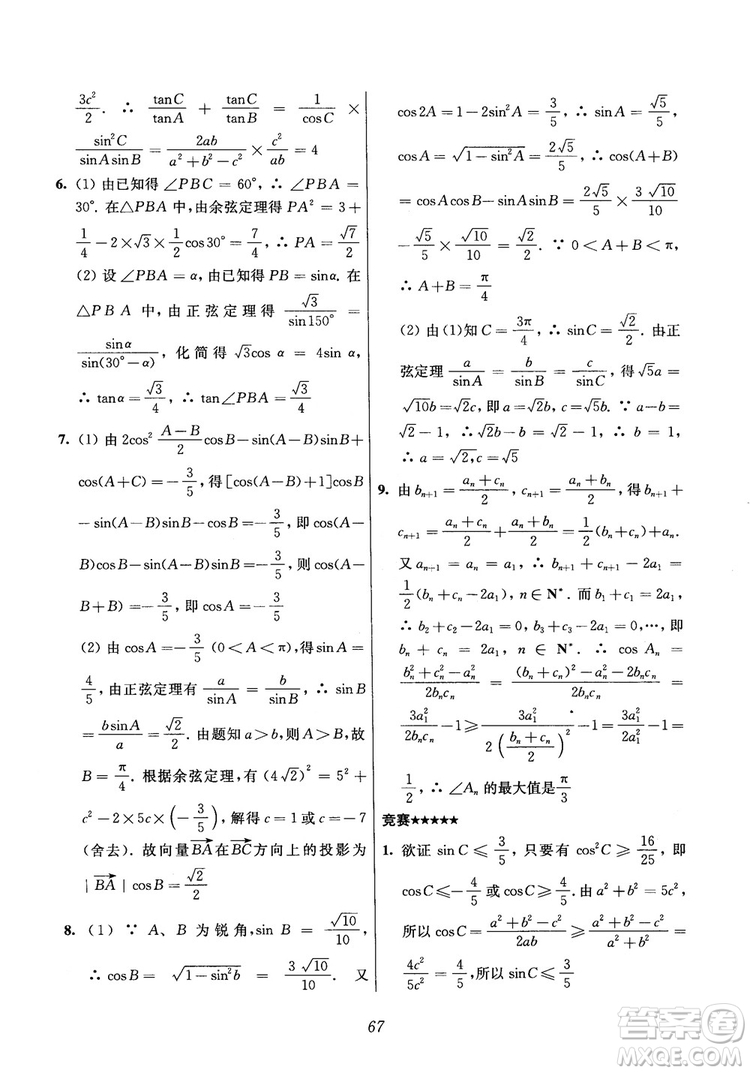 3c²/2. ∴ tanC/tanA + tanC/tanB = 1/cosC ×
sin²C/sinAsinB = 2ab/(a²+b²-c²) × c²/ab = 4
6. (1) 由已知得∠PBC=60°, ∴∠PBA=
30°. 在△PBA中,由余弦定理得PA²=3+
1/4-2×√3×1/2cos30°=7/4, ∴PA=√7/2
(2) 设∠PBA=α,由已知得PB=sinα. 在
△PBA中,由正弦定理得 √3/sin150°=
sinα/sin(30°-α), 化简得√3cosα=4sinα,
∴tanα=√3/4, ∴tan∠PBA=√3/4
7. (1) 由2cos²(A-B)/2 cosB-sin(A-B)sinB+
cos(A+C)=-3/5,得[cos(A-B)+1]cosB
-sin(A-B)sinB-cosB=-3/5,即cos(A-
B)cosB-sin(A-B)sinB=-3/5,则cos(A-
B+B)=-3/5,即cosA=-3/5
(2) 由cosA=-3/5(0<A<π),得sinA=
4/5,由正弦定理有a/sinA=b/sinB, ∴sinB
=bsinA/a=√2/2. 由题知a>b,则A>B,故
B=π/4. 根据余弦定理,有(4√2)²=5²+
c²-2×5c×(-3/5),解得c=1或c=-7
(舍去). 故向量BA→在BC→方向上的投影为
|BA→|cosB=√2/2
8. (1) ∵A、B为锐角,sin B=√10/10,
∴cosB=√(1-sin²b)=3√10/10. 又
cos2A=1-2sin²A=3/5, ∴sinA=√5/5,
cosA=√(1-sin²A)=2√5/5, ∴cos(A+B)
=cosAcosB-sinAsinB=2√5/5×3√10/10-
√5/5×√10/10=√2/2. ∵0<A+B<π,
∴A+B=π/4
(2) 由(1)知C=3π/4, ∴sinC=√2/2. 由正
弦定理a/sinA=b/sinB=c/sinC得√5a=
√10b=√2c,即a=√2b,c=√5b. ∵a-b=
√2-1, ∴√2b-b=√2-1, ∴b=
1, ∴a=√2,c=√5
9. 由b_{n+1}=(a_n+c_n)/2,c_{n+1}=(a_n+b_n)/2,得b_{n+1}+
c_{n+1}=(a_n+c_n)/2+(a_n+b_n)/2=1/2(b_n+c_n)+a_n.
又a_{n+1}=a_n=a₁, ∴b_{n+1}+c_{n+1}-2a₁=
1/2(b_n+c_n-2a₁),n∈N*. 而b₁+c₁=2a₁,
∴b₂+c₂-2a₁=0,b₃+c₃-2a₁=0,…,
b_n+c_n=2a₁,n∈N*. ∴cos A_n=
(b_n²+c_n²-a_n²)/2b_nc_n=((b_n+c_n)²-a_n²-2b_nc_n)/2b_nc_n=
3a₁²/2b_nc_n-1≥3a₁²/2((b_n+c_n)/2)²-1=3a₁²/2a₁²-1=
1/2, ∴∠A_n的最大值是π/3
竞赛★★★★★
1. 欲证sinC≤3/5,只要有cos²C≥16/25,即
cosC≤-4/5或cosC≥4/5. 由a²+b²=5c²,
所以cosC=(a²+b²-c²)/2ab≥(a²+b²-c²)/(a²+b²)=
4c²/5c²=4/5,所以sinC≤3/5
67
答案圈
MXQE.COM